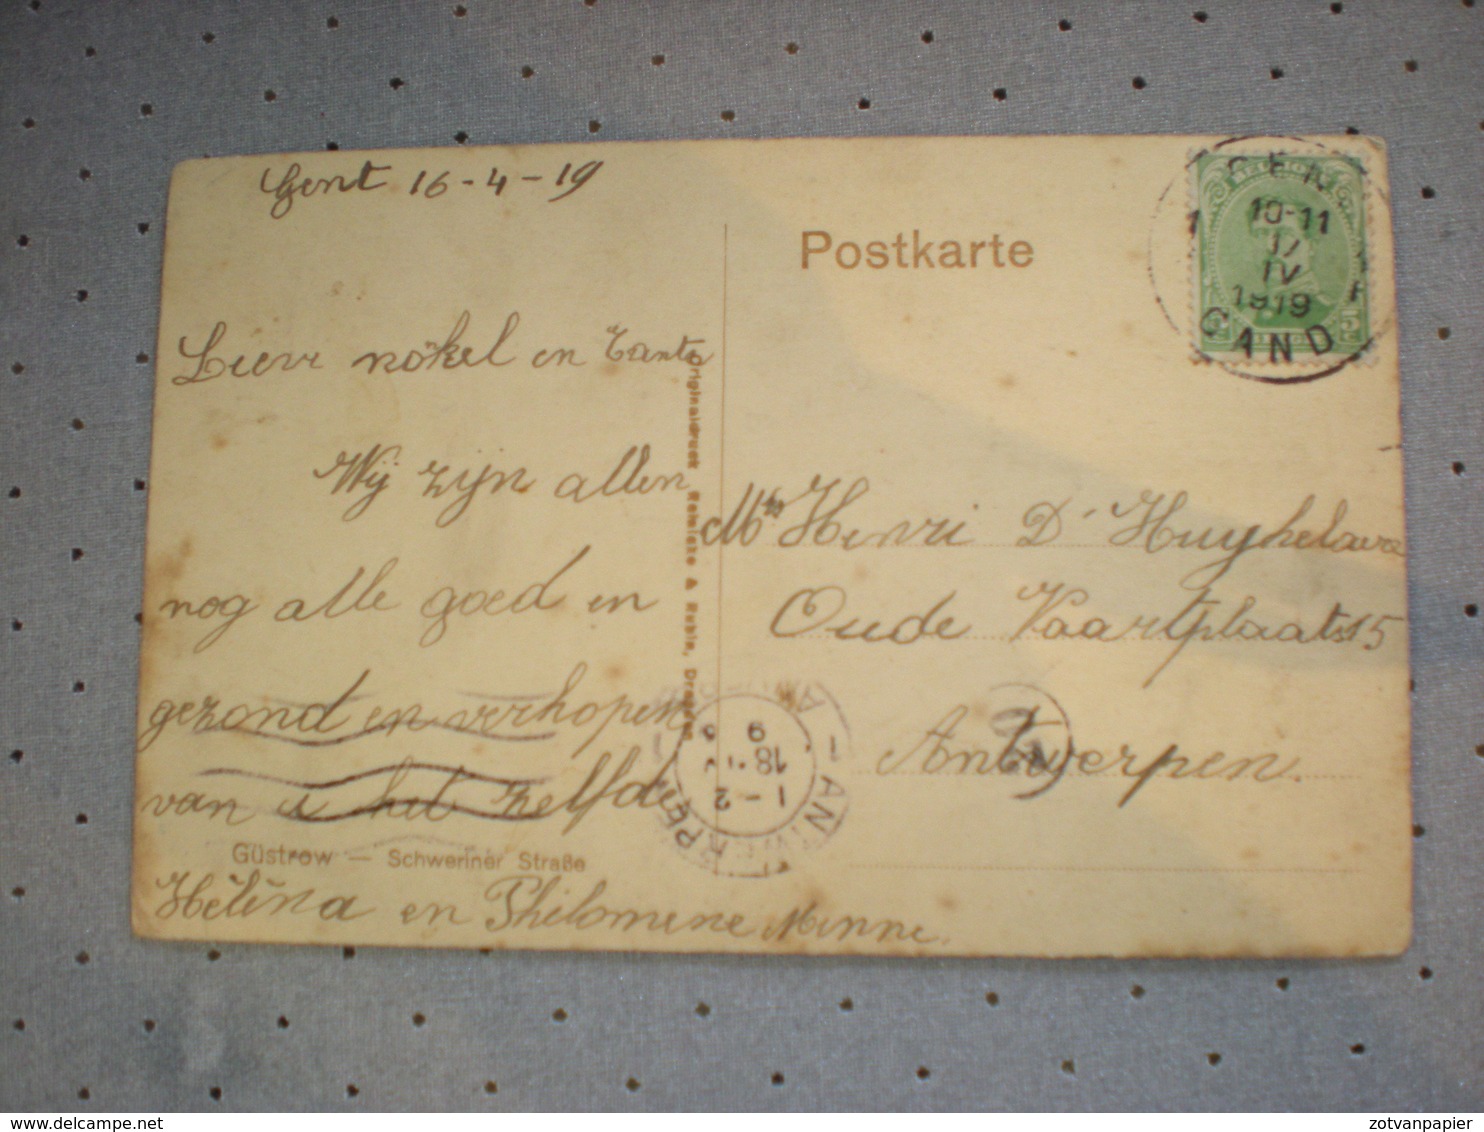 Gent 16-4-19
Lieve nokel en Tante
Wij zijn allen
nog alle goed en
gezond en verhopen
van u het zelfde
Güstrow — Schweriner Straße
Héléna en Philomene Minne.
Originaldruck Reinicke & Rubin, Dresden
Postkarte
10-11
17
IV
1919
GAND
5
Henri D'Huyhelaere
Oude Vaartplaats 15
Antwerpen.
ANTWERPEN
1 – 2
18 IV
zotvanpapier